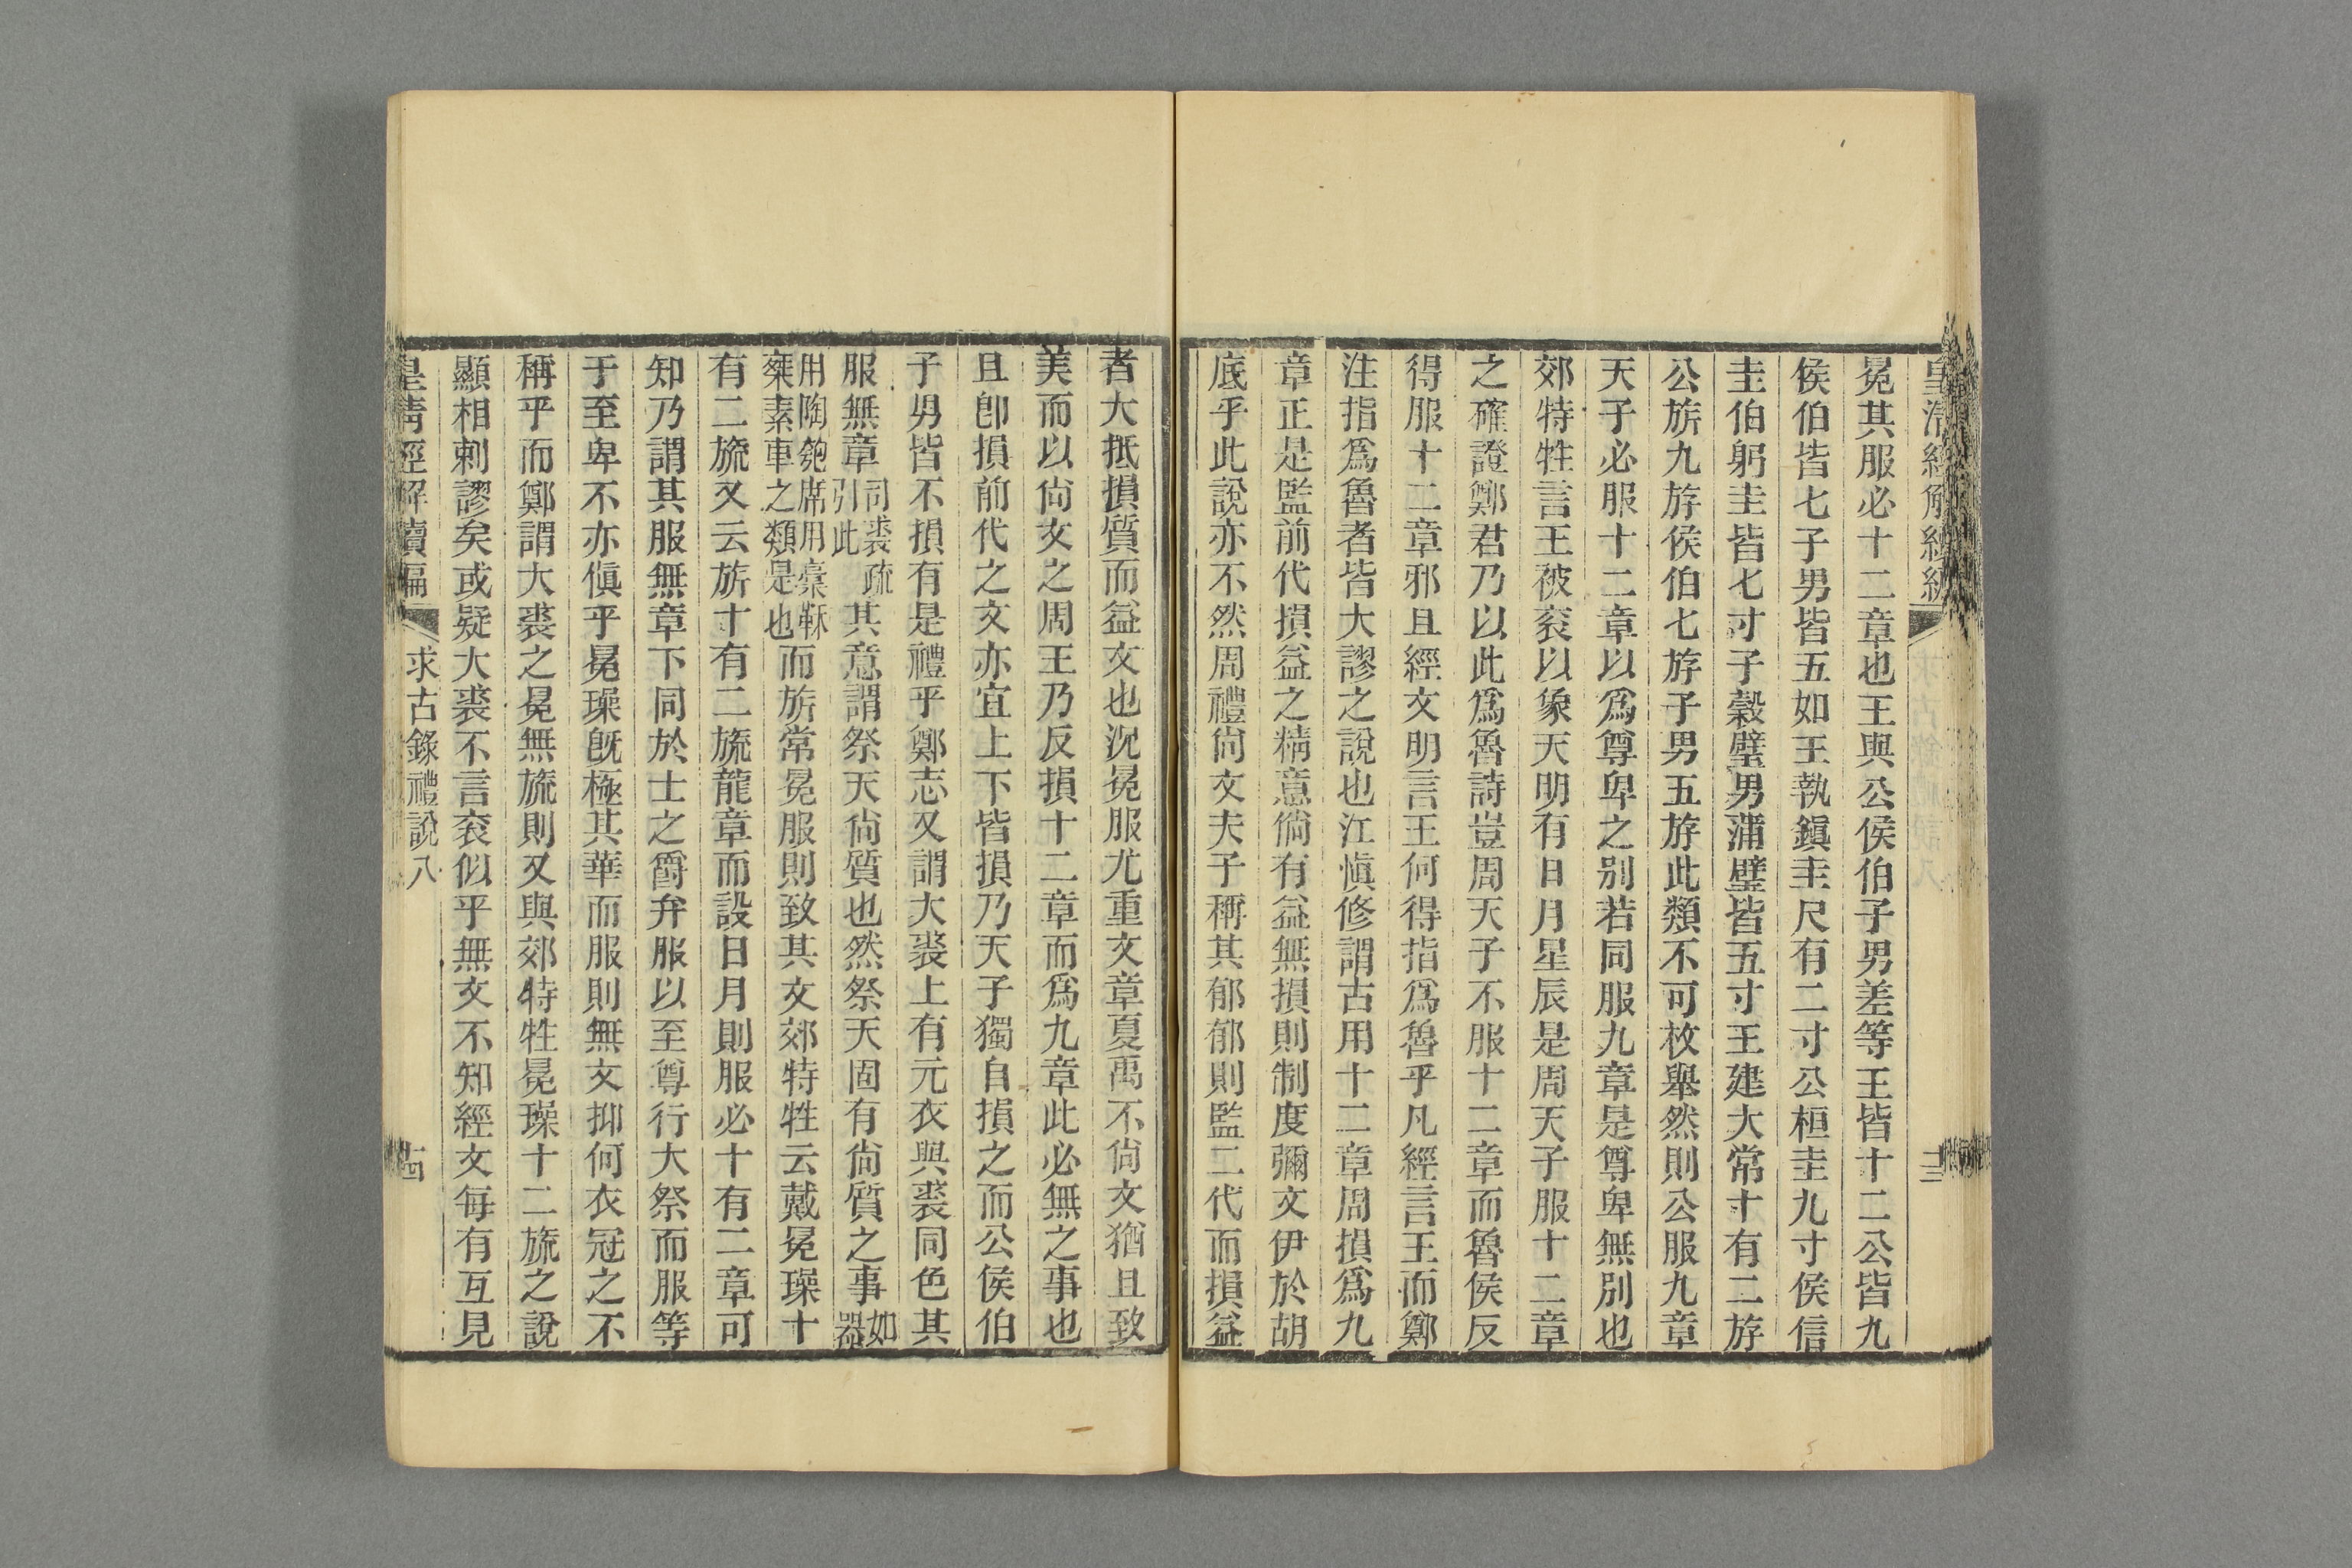 冕其服必十二章也王與公侯伯子男差等王皆十二公皆九
侯伯皆七子男皆五如王執鎭圭尺有二寸公桓圭九寸侯信
圭伯躬圭皆七寸子穀璧男蒲璧皆五寸王建大常十有二斿
公旂九斿侯伯七斿子男五斿此類不可枚舉然則公服九章
天子必服十二章以爲尊卑之别若同服九章是尊卑無別也
郊特牲言王被衮以象天明有日月星辰是周天子服十二章
之確證鄭君乃以此爲魯詩豈周天子不服十二章而魯侯反
得服十二章邪且經文明言王何得指爲魯乎凡經言王而鄭
注指爲魯者皆大謬之說也江愼修謂古用十二章周損爲九
章正是監前代損益之精意倘有益無損則制度彌文伊於胡
底乎此說亦不然周禮尙文夫子稱其郁郁則監二代而損益
者大抵損質而益文也況冕服尤重文章夏禹不尙文猶且致
美而以尙文之周王乃反損十二章而爲九章此必無之事也
且卽損前代之文亦宜上下皆損乃天子獨自損之而公侯伯
子男皆不損有是禮乎鄭志又謂大裘上有元衣與裘同色其
服無章司裘疏引此其意謂祭天尙質也然祭天固有尙質之事如器
用陶匏席用稾秣椉素車之類是也而旂常冕服則致其文郊特牲云戴冕璪十
有二旒又云旂十有二旒龍章而設日月則服必十有二章可
知乃謂其服無章下同於士之爵弁服以至尊行大祭而服等
于至卑不亦傎乎冕璪旣極其華而服則無文抑何衣冠之不
稱乎而鄭謂大裘之冕無旒則又與郊特牲冕璪十二旒之說
顯相剌謬矣或疑大裘不言衮似乎無文不知經文每有互見
皇淸經解續編
求古錄禮說八
十四